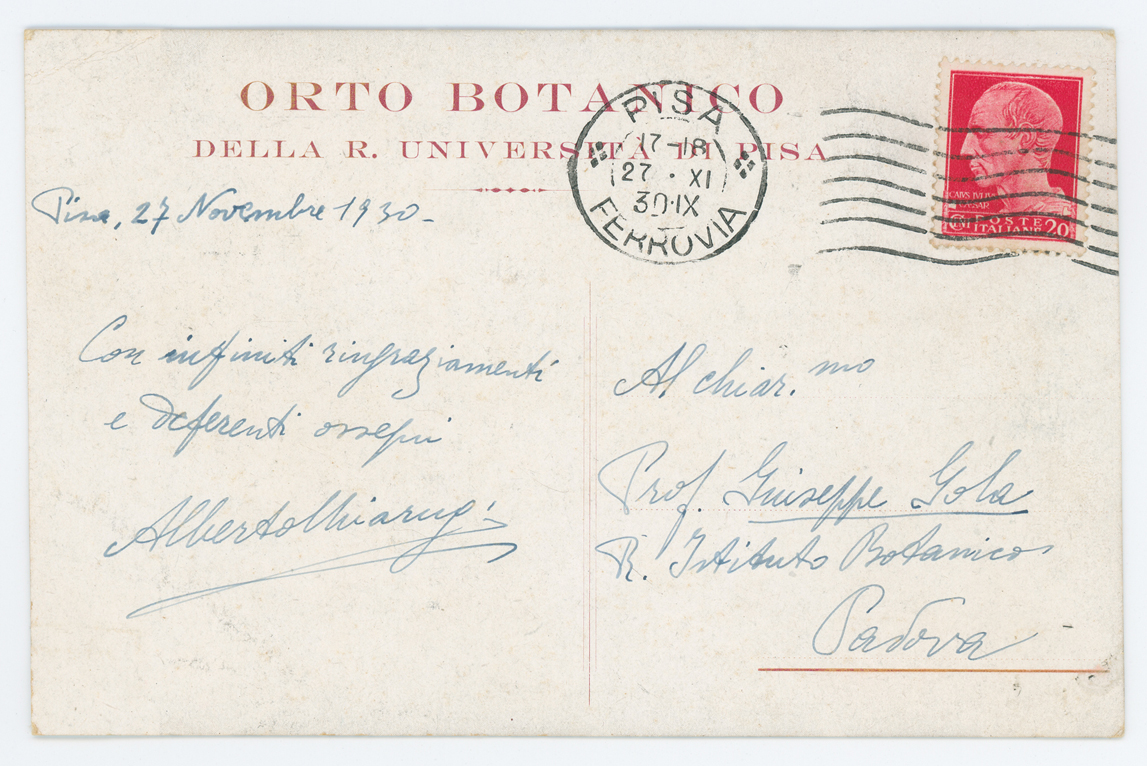 ORTO BOTANICO
DELLA R. UNIVERSITÀ DI PISA
PISA
17-18
27 · XI
30·IX
FERROVIA
CAIVS IVLIVS
CAESAR
CENT. POSTE
ITALIANE 20
Pisa, 27 Novembre 1930-
Con infiniti ringraziamenti
e deferenti ossequi
Alberto Chiarugi
Al chiar.mo
Prof. Giuseppe Gola
R. Istituto Botanico
Padova